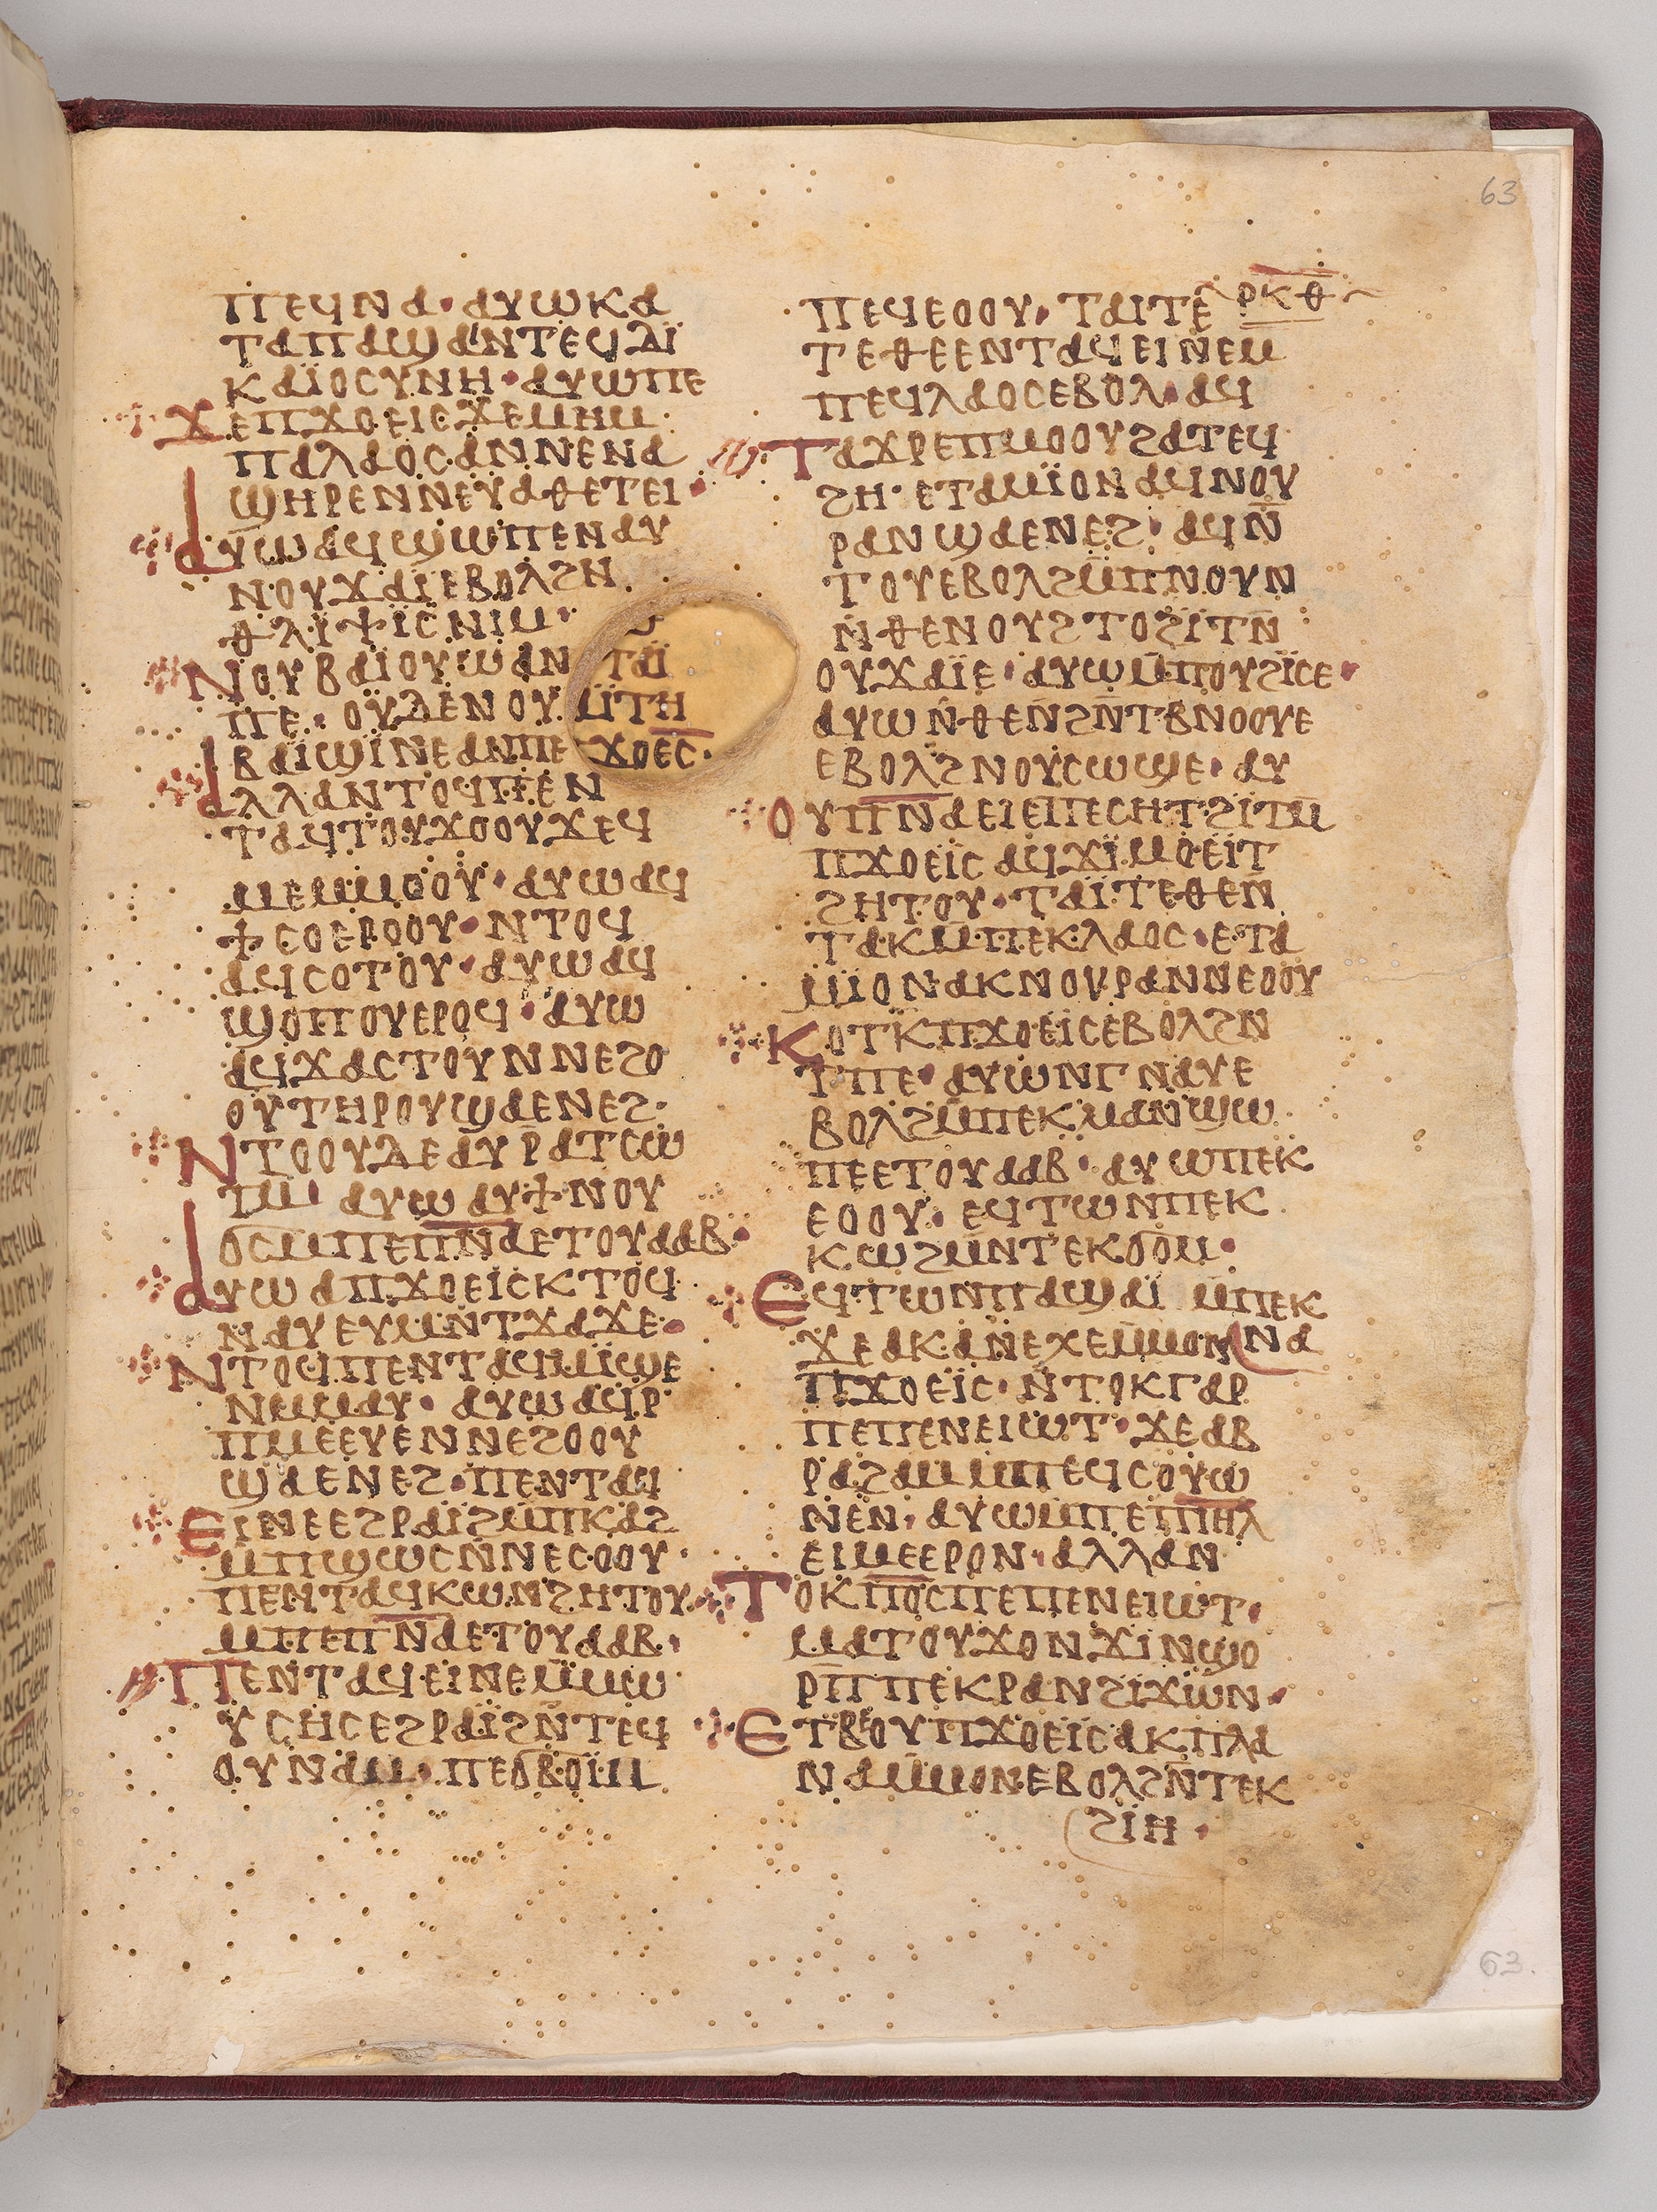 63
ⲣⲕⲑ
ⲡⲉϥⲛⲁ· ⲁⲩⲱⲕⲁ
ⲧⲁⲡⲁϣⲁⲛⲧⲉϥⲇⲓ
ⲕⲁⲓⲟⲥⲩⲛⲏ· ⲁⲩⲱⲡⲉ
ϫⲉⲡϫⲟⲉⲓⲥϫⲉⲙⲏⲙ
ⲡⲁⲗⲁⲟⲥⲁⲛⲛⲉⲛⲁ
ϣⲏⲣⲉⲛⲛⲉⲩⲁⲑⲉⲧⲉⲓ·
ⲁⲩⲱⲁϥϣⲱⲡⲉⲛⲁⲩ
ⲛⲟⲩϫⲁⲓⲉⲃⲟⲗϩⲛ
ⲑⲗⲓⲯⲓⲥⲛⲓⲙ·
ⲛⲟⲩⲃⲁⲓⲟⲩⲱⲁⲛ
ⲡⲉ· ⲟⲩⲇⲉⲛⲟⲩ
ⲃⲁⲓϣⲓⲛⲉⲁⲛⲡⲉ
ⲧⲁⲓ
ⲙⲛⲧⲏ
ϫⲟⲉⲥ·
ⲁⲗⲗⲁⲛⲧⲟϥⲡⲉⲛ
ⲧⲁϥⲧⲟⲩϫⲟⲟⲩϫⲉϥ
ⲙⲉⲙⲙⲟⲟⲩ· ⲁⲩⲱⲁϥ
ϯⲥⲟⲉⲣⲟⲟⲩ· ⲛⲧⲟϥ
ⲁϥⲥⲟⲧⲟⲩ· ⲁⲩⲱⲁϥ
ϣⲟⲡⲟⲩⲉⲣⲟϥ· ⲁⲩⲱ
ⲁϥϫⲁⲥⲧⲟⲩⲛⲛⲉϩⲟ
ⲟⲩⲧⲏⲣⲟⲩϣⲁⲉⲛⲉϩ·
ⲛⲧⲟⲟⲩⲇⲉⲁⲩⲣⲁⲧⲥⲱ
ⲧⲙ ⲁⲩⲱⲁⲩϯⲛⲟⲩ
ϭⲥⲙⲡⲉⲡ̅ⲛ̅ⲁⲉⲧⲟⲩⲁⲁⲃ·
ⲁⲩⲱⲁⲡϫⲟⲉⲓⲥⲕⲧⲟϥ
ⲛⲁⲩⲉⲩⲙⲛⲧϫⲁϫⲉ·
ⲛⲧⲟϥⲡⲉⲛⲧⲁϥⲙⲓϣⲉ
ⲛⲙⲙⲁⲩ· ⲁⲩⲱⲁϥⲣ
ⲡⲙⲉⲉⲩⲉⲛⲛⲉϩⲟⲟⲩ
ϣⲁⲉⲛⲉϩ· ⲡⲉⲛⲧⲁϥ
ⲉⲓⲛⲉⲉϩⲣⲁⲓϩⲙⲡⲕⲁϩ
ⲙⲡϣⲱⲥⲛⲛⲉⲥⲟⲟⲩ·
ⲡⲉⲛⲧⲁϥⲕⲱⲛϩⲏⲧⲟⲩ
ⲙⲡⲉⲡ̅ⲛ̅ⲁⲉⲧⲟⲩⲁⲁⲃ·
ⲡⲉⲛⲧⲁϥⲉⲓⲛⲉⲙⲙⲱ
ⲩⲥⲏⲥⲉϩⲣⲁⲓϩⲛⲧⲉϥ
ⲟⲩⲛⲁⲙ· ⲡⲉϭⲃⲟⲓⲙ
ⲡⲉϥⲉⲟⲟⲩ· ⲧⲁⲓⲧⲉ
ⲧⲉⲑⲉⲉⲛⲧⲁϥⲉⲓⲛⲉⲙ
ⲡⲉϥⲗⲁⲟⲥⲉⲃⲟⲗ· ⲁϥ
ⲧⲁϫⲣⲉⲡⲙⲟⲟⲩϩⲁⲧⲉϥ
ϩⲏ· ⲉⲧⲁⲙⲓⲟⲛⲁϥⲛⲟⲩ
ⲣⲁⲛϣⲁⲉⲛⲉϩ· ⲁϥⲛ̅
ⲧⲟⲩⲉⲃⲟⲗϩⲙⲡⲛⲟⲩⲛ
ⲛⲑⲉⲛⲟⲩϩⲧⲟϩⲓⲧⲛ
ⲟⲩϫⲁⲓⲉ· ⲁⲩⲱⲙⲡⲟⲩϩⲓⲥⲉ·
ⲁⲩⲱⲛⲑⲉⲛϩⲛⲧⲃⲛⲟⲟⲩⲉ
ⲉⲃⲟⲗϩⲛⲟⲩⲥⲱϣⲉ· ⲁⲩ
ⲟⲩⲡ̅ⲛ̅ⲁⲉⲓⲉⲡⲉⲥⲏⲧϩⲓⲧⲙ
ⲡϫⲟⲉⲓⲥⲁϥϫⲓⲙⲟⲉⲓⲧ
ϩⲏⲧⲟⲩ· ⲧⲁⲓⲧⲉⲑⲉⲛ
ⲧⲁⲕⲙⲡⲉⲕⲗⲁⲟⲥ· ⲉⲧⲁ
ⲙⲓⲟⲛⲁⲕⲛⲟⲩⲣⲁⲛⲛⲉⲟⲟⲩ
ⲕⲟⲧⲕⲡϫⲟⲉⲓⲥⲉⲃⲟⲗϩⲛ
ⲧⲡⲉ· ⲁⲩⲱⲛⲅⲛⲁⲩⲉ
ⲃⲟⲗϩⲙⲡⲉⲕⲙⲁⲛϣⲱ
ⲡⲉⲉⲧⲟⲩⲁⲁⲃ· ⲁⲩⲱⲡⲉⲕ
ⲉⲟⲟⲩ· ⲉϥⲧⲱⲛⲡⲉⲕ
ⲕⲱϩⲙⲛⲧⲉⲕϭⲟⲙ·
ⲉϥⲧⲱⲛⲡⲁϣⲁⲓ ⲙⲡⲉⲕ
ⲛⲁ
ϫⲉⲁⲕⲁⲛⲉⲭⲉⲙⲙⲟⲛ
ⲡϫⲟⲉⲓⲥ· ⲛⲧⲟⲕⲅⲁⲣ
ⲡⲉⲡⲉⲛⲉⲓⲱⲧ· ϫⲉⲁⲃ
ⲣⲁϩⲁⲙⲙⲡⲉϥⲥⲟⲩⲱ
ⲛⲉⲛ· ⲁⲩⲱⲙⲡⲉⲡⲓ̅ⲏ̅ⲗ̅
ⲉⲓⲙⲉⲉⲣⲟⲛ· ⲁⲗⲗⲁⲛ
ⲧⲟⲕⲡⲟ̅ⲥ̅ⲡⲉⲡⲉⲛⲉⲓⲱⲧ·
ⲙⲁⲧⲟⲩϫⲟⲛϫⲓⲛϣⲟ
ⲣⲡ̅ⲡⲉⲕⲣⲁⲛϩⲓϫⲱⲛ·
ⲉⲧⲃⲉⲟⲩⲡϫⲟⲉⲓⲥⲁⲕⲡⲗⲁ
ⲛⲁⲙⲙⲟⲛⲉⲃⲟⲗϩⲛⲧⲉⲕ
ϩⲓⲏ·
63.